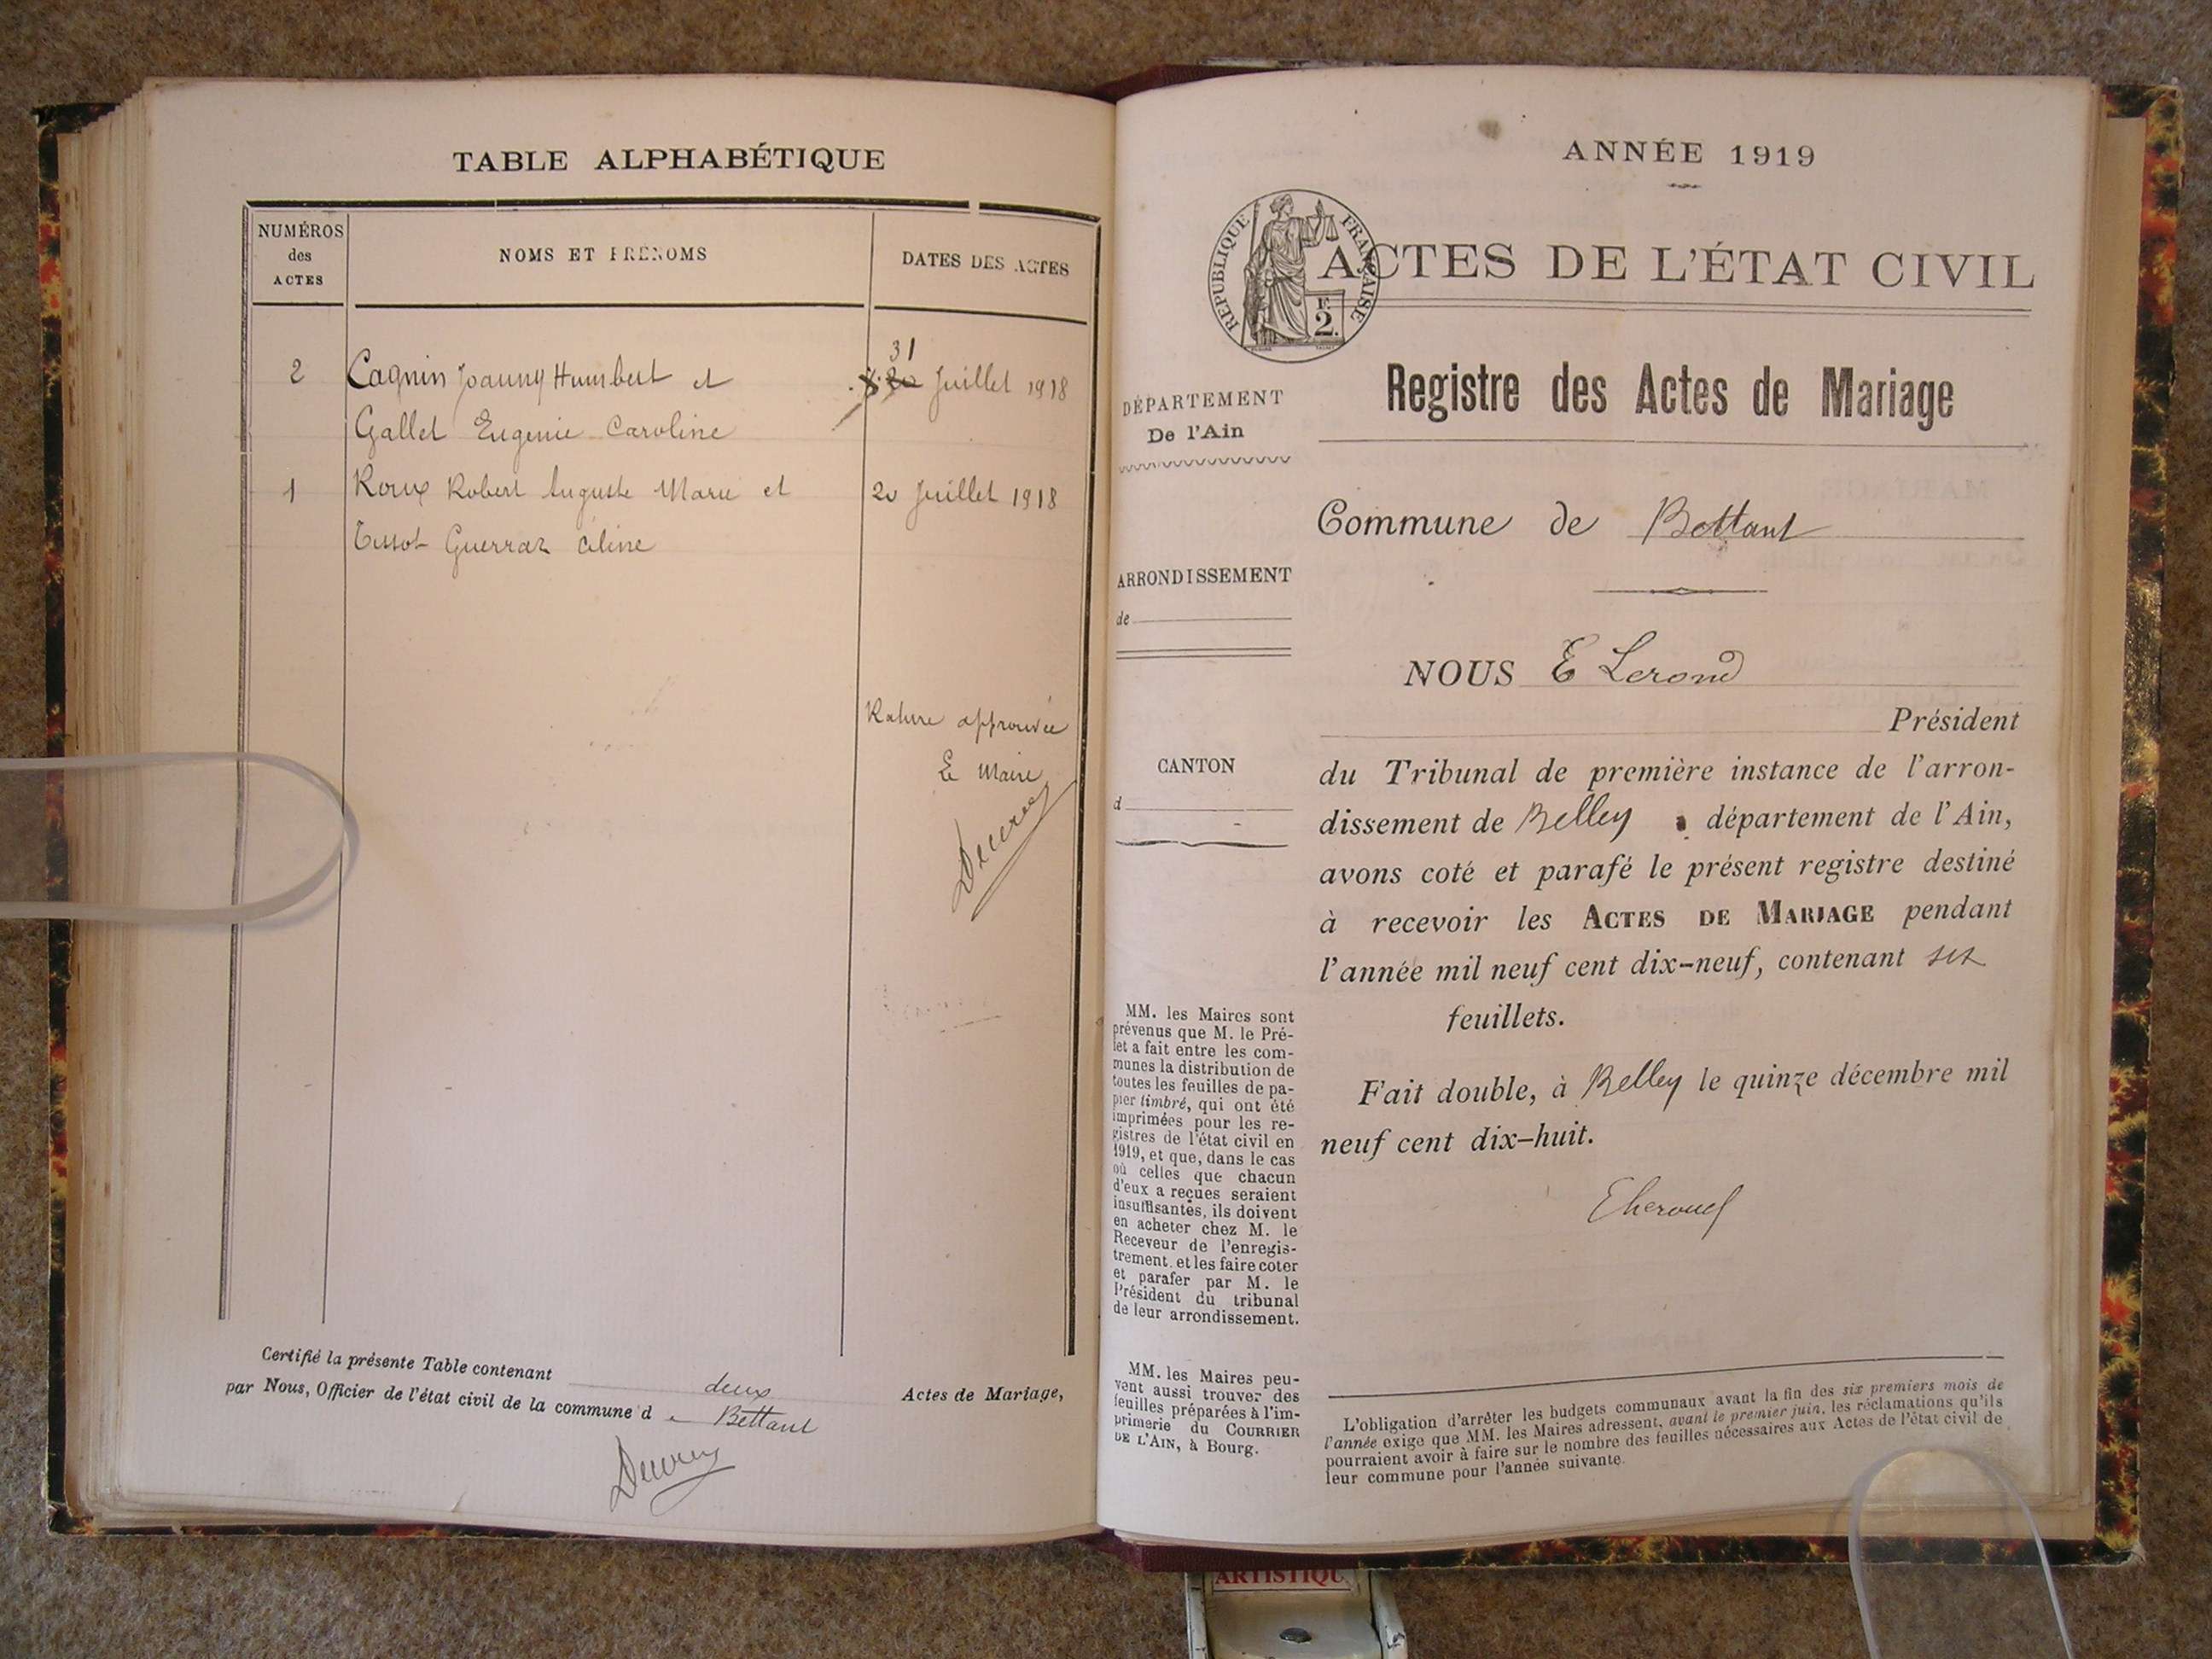 TABLE ALPHABÉTIQUE
NUMÉROS
des
ACTES
NOMS ET PRÉNOMS
DATES DES ACTES
2
Cagnin Joanny Humbert et
31
20 Juillet 1918
Gallet Eugenie Caroline
1
Roux Robert Auguste Marie et
20 Juillet 1918
Tissot Guerraz Céline
Rature approuvée
Le Maire
Certifié la présente Table contenant deux Actes de Mariage,
par Nous, Officier de l'état civil de la commune d e Bettant
ANNÉE 1919
RÉPUBLIQUE FRANÇAISE
F.
2.
ACTES DE L'ÉTAT CIVIL
Registre des Actes de Mariage
DÉPARTEMENT
De l'Ain
Commune de Bettant
ARRONDISSEMENT
de
NOUS E Lerond
Président
CANTON
d
du Tribunal de première instance de l'arron-
dissement de Belley, département de l'Ain,
avons coté et parafé le présent registre destiné
à recevoir les ACTES DE MARIAGE pendant
l'année mil neuf cent dix-neuf, contenant six
feuillets.
Fait double, à Belley le quinze décembre mil
neuf cent dix-huit.
MM. les Maires sont
prévenus que M. le Pré-
fet a fait entre les com-
munes la distribution de
toutes les feuilles de pa-
pier timbré, qui ont été
imprimées pour les re-
gistres de l'état civil en
1919, et que, dans le cas
où celles que chacun
d'eux a reçues seraient
insuffisantes, ils doivent
en acheter chez M. le
Receveur de l'enregis-
trement, et les faire coter
et parafer par M. le
Président du tribunal
de leur arrondissement.
MM. les Maires peu-
vent aussi trouver des
feuilles préparées à l'im-
primerie du COURRIER
DE L'AIN, à Bourg.
L'obligation d'arrêter les budgets communaux avant la fin des six premiers mois de
l'année exige que MM. les Maires adressent, avant le premier juin, les réclamations qu'ils
pourraient avoir à faire sur le nombre des feuilles nécessaires aux Actes de l'état civil de
leur commune pour l'année suivante.
ARTISTIQU